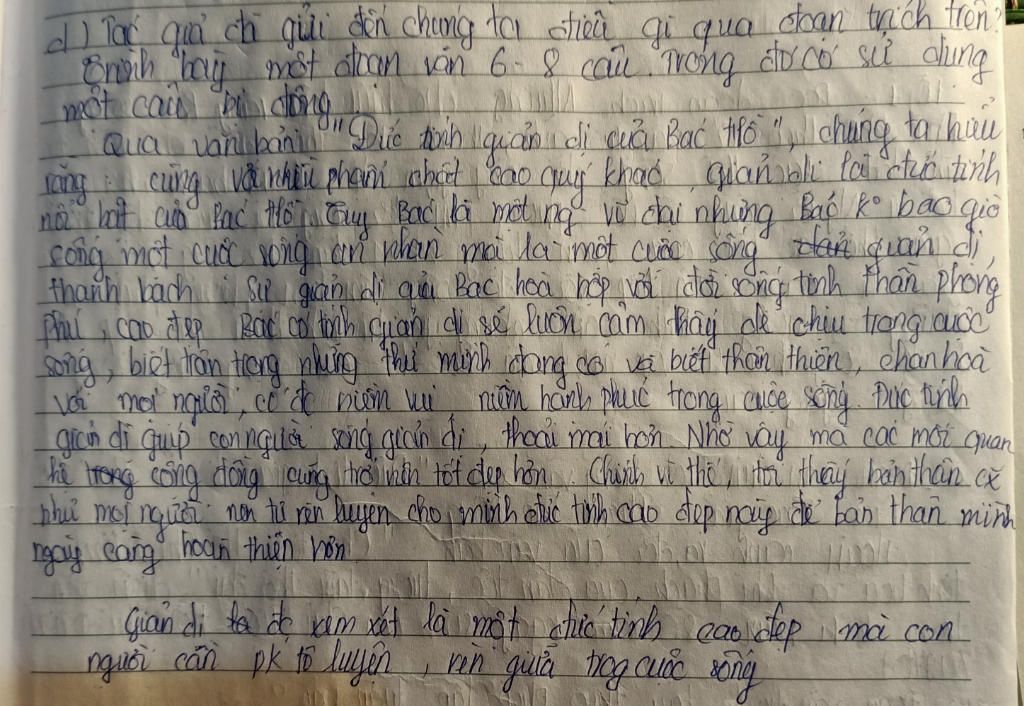 d) Tác giả đã gửi đến chúng ta điều gì qua đoạn trích trên?
Trình bày một đoạn văn 6-8 câu. Trong đó có sử dụng
một câu bị động
Qua văn bản "Đức tính giản dị của Bác Hồ", chúng ta hiểu
rằng: cùng với nhiều phẩm chất cao quý khác, giản dị là đức tính
nổi bật của Bác Hồ. Tuy Bác là một ng vĩ đại nhưng Bác ko bao giờ
sống một cuộc sống an nhàn mà là một cuộc sống giản dị,
thanh bạch. Sự giản dị của Bác hoà hợp với đời sống tinh thần phong
phú, cao đẹp. Bác có tính giản dị sẽ luôn cảm thấy dễ chịu trong cuộc
sống, biết trân trọng những thứ mình đang có và biết thân thiện, chan hoà
với mọi người, có đc niềm vui niềm hạnh phúc trong cuộc sống. Đức tính
giản dị giúp con người sống giản dị, thoải mái hơn. Nhờ vậy mà các mối quan
hệ trong cộng đồng cũng trở nên tốt đẹp hơn. Chính vì thế, tôi thấy bản thân cx
như mọi người nên tự rèn luyện cho mình đức tính cao đẹp này để bản thân mình
ngày càng hoàn thiện hơn
Giản dị đc xem xét là một đức tính cao đẹp mà con
người cần pk tô luyện, rèn giũa trog cuộc sống